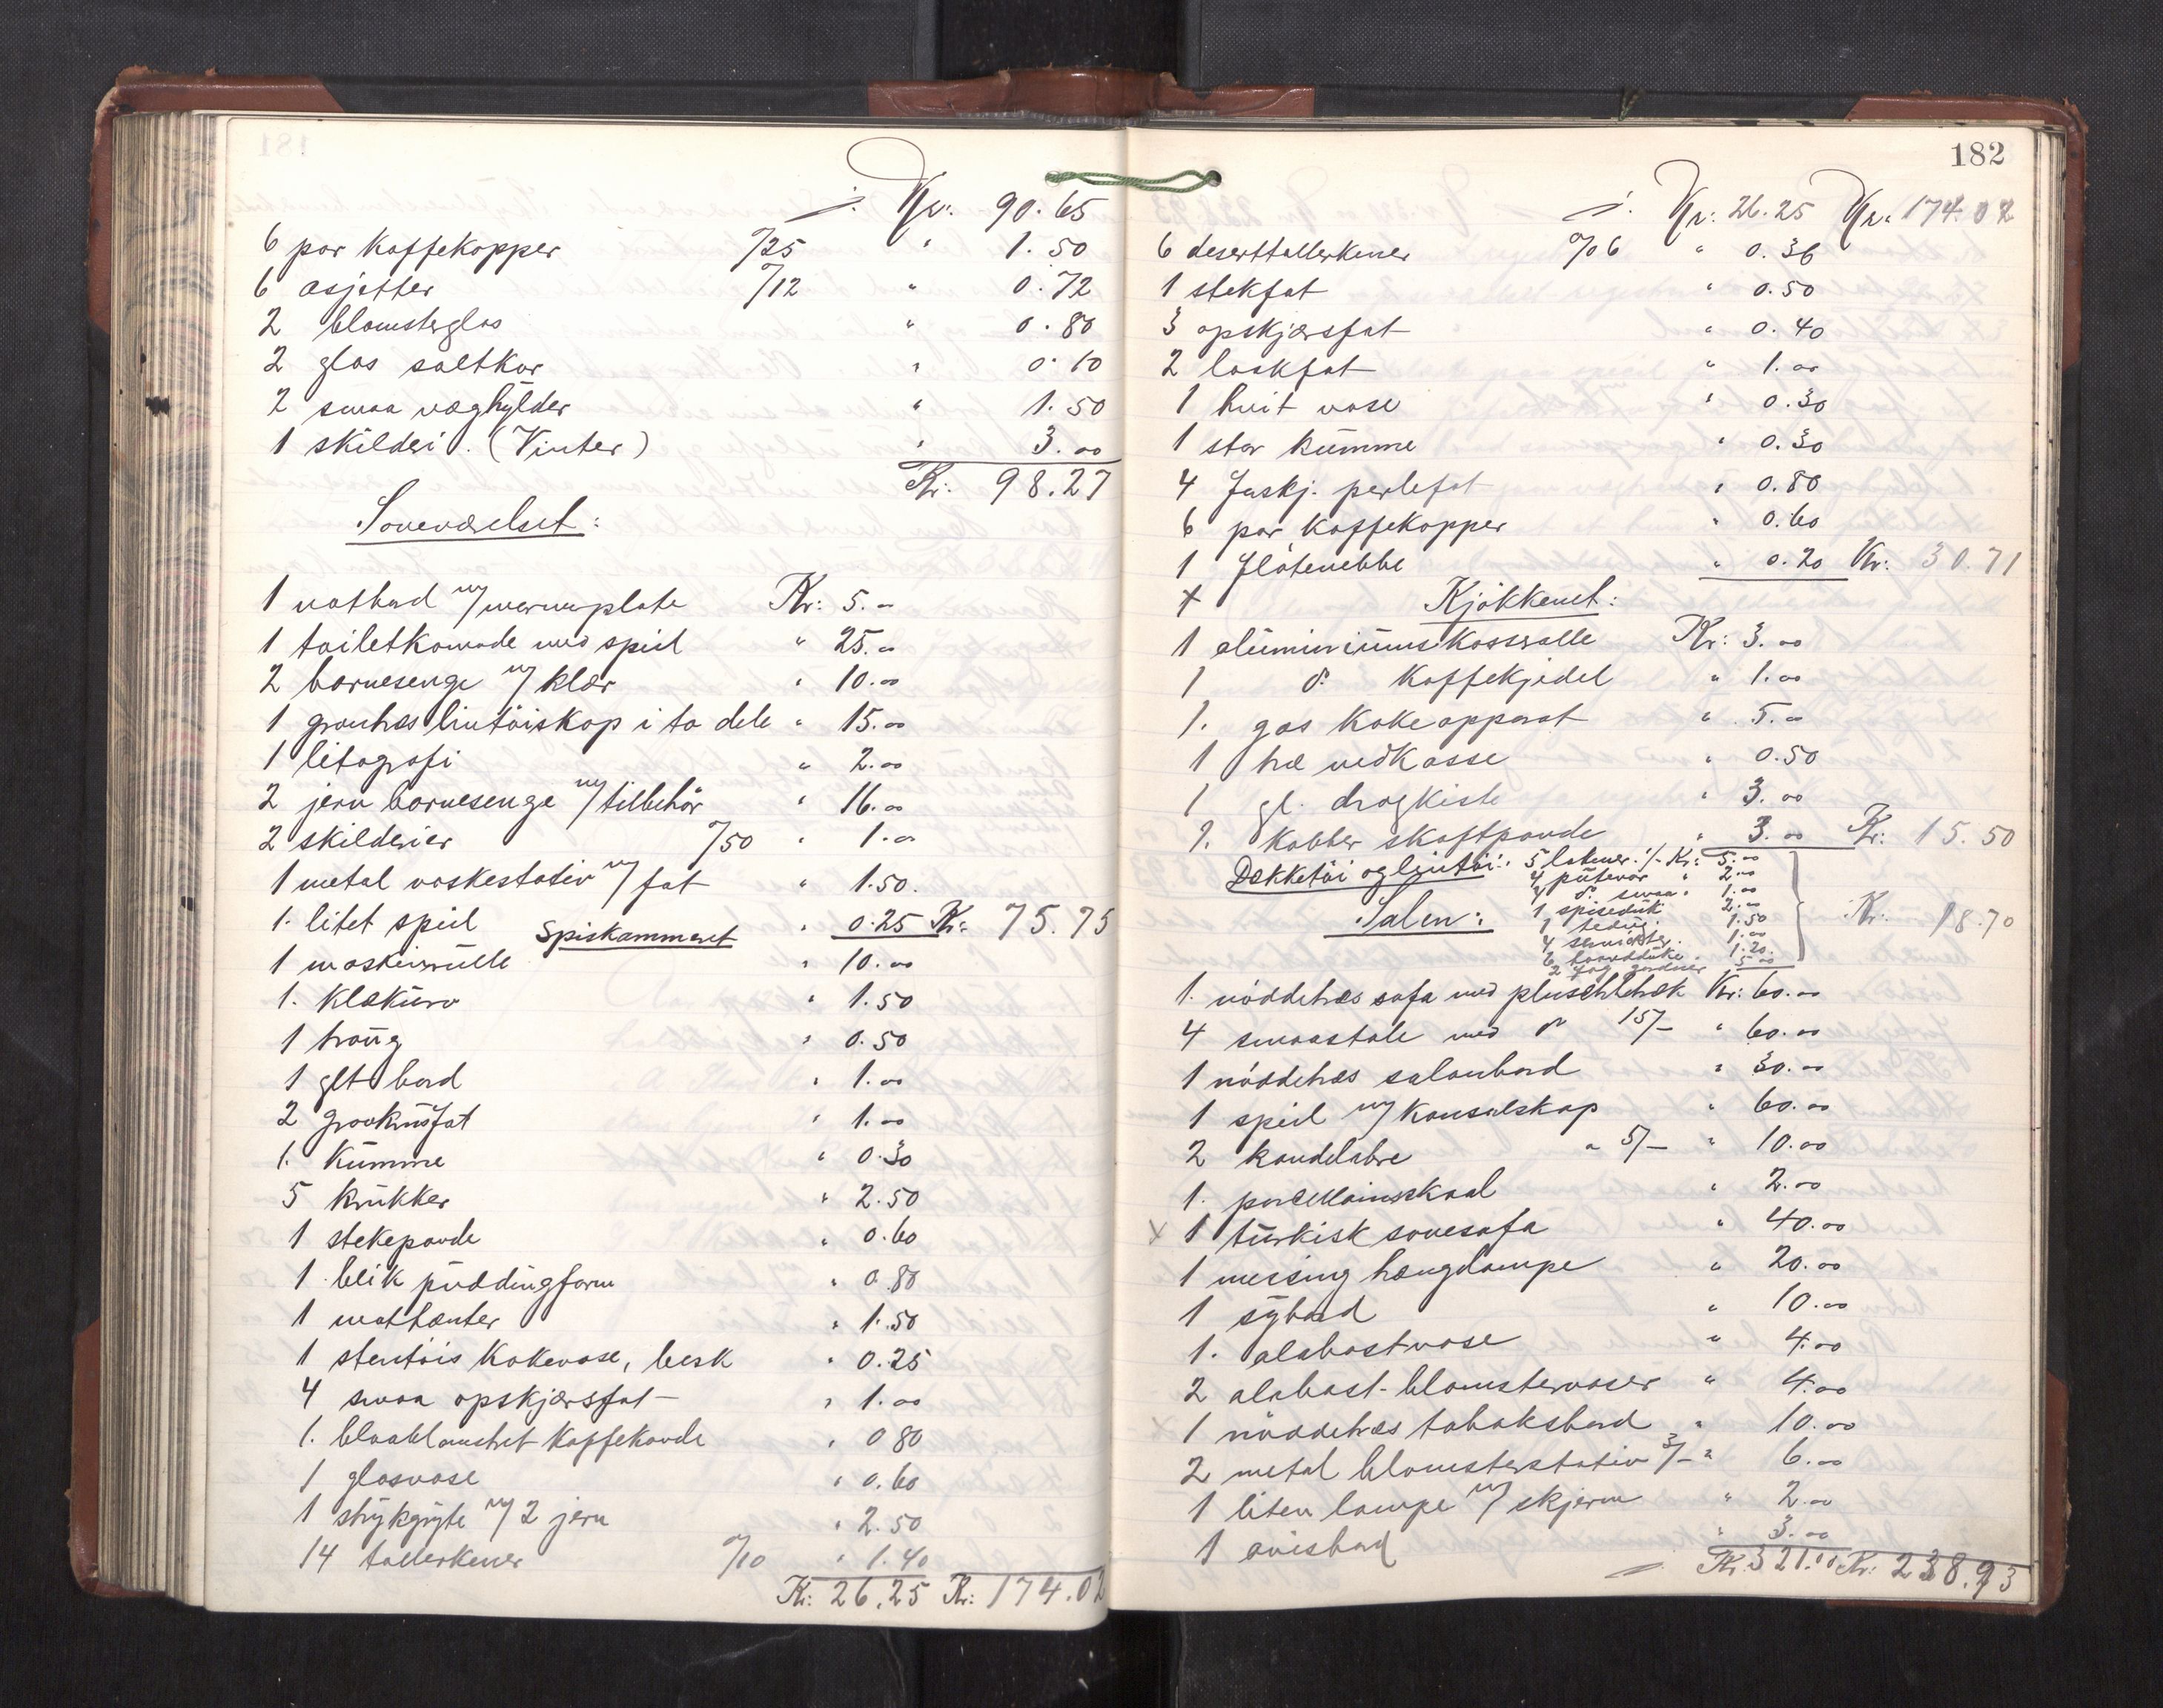 Kr: 90.65
6 par kaffekopper %25 " 1.50
6 asjetter %12 " 0.72
2 blomsterglas " 0.80
2 glas saltkar " 0.10
2 smaa væghylder " 1.50
1 skilderi. (Vinter) " 3.00
Kr: 98.27
Soveværelset:
1 natbord m/ marmorplate Kr: 5.00
1 toiletkomode med speil " 25.00
2 barnesenge m/ klær " 10.00
1 grantræs lintöiskap i to dele " 15.00
1 litografi " 2.00
2 jern barnesenge m/ tilbehör " 16.00
2 skilderier %50 " 1.00
1 metal vaskestativ m/ fat " 1.50.
1. litet speil " 0.25 Kr: 75.75
Spiskammeret
1 maskinrulle " 10.00
1. klækurv " 1.50
1 traug " 0.50
1 glt bord " 1.00
2 graakrusfat " 1.00
1. kumme " 0.30
5 krukker " 2.50
1 stekepande " 0.60
1 blik puddingform " 0.80
1 mathenter " 1.50
1 stentöis kakevase, besk " 0.25
4 smaa opskjærsfat " 1.00
1. blaablomstret kaffekande " 0.80
1 glasvase " 0.60
1 strykgryte m/ 2 jern " 2.50
14 tallerkener %10 " 1.40
Kr: 26.25 Kr: 174.02
182
Kr: 26.25 Kr: 174.02
6 deserttallerkener %06 " 0.36
1 stekfat " 0.50
3 opskjærsfat " 0.40
2 laskfat " 1.00
1 hvit vase " 0.30
1 stor kumme " 0.30
4 forskj. perlefat " 0.80
6 par kaffekopper " 0.60
1 flötenebbe " 0.20 Kr: 30.71
x Kjökkenet:
1 aluminiums kasserolle Kr: 3.00
1 do kaffekjedel " 1.00
1. gas kokeapparat " 5.00
1 træ vedkasse " 0.50
1 gl. dragkiste " 3.00
1. kobber skaftpande " 3.00 Kr: 15.50
Dækketöi og lintöi: 5 lakener 1/- Kr: 5.00
4 putevar " 2.00
4 do smaa " 1.00
1 spisedük 2.00
Salen:
1 tedug 1.50
4 servietter. 1.00
6 haandduke. 1.20.
2 fag gardiner 5.00
Kr: 18.70
1. nöddetræs sofa med pluschtræk Kr: 60.00
4 smaastole med do 15/- " 60.00
1 nöddetræs salonbord " 30.00
1 speil m/ konsolskap " 60.00
2 kandelabre a 5/- " 10.00
1. porcellainsskaal " 2.00
x 1 türkisk sovesofa " 40.00
1 messing hænglampe " 20.00
1 sybord " 10.00
1. alabastvase " 4.00
2 alabast-blomstervaser " 4.00
x 1 nöddetræs tobaksbord " 10.00
2 metal blomsterstativ 3/- " 6.00
1 liten lampe m/ skjerm " 2.00
1 avisbord " 3.00
Kr. 321.00 Kr: 238.93